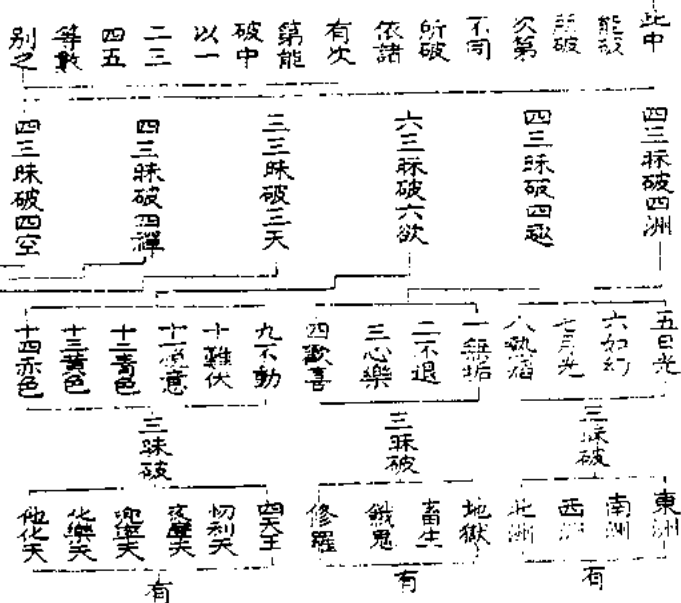 此中
能破
所破
次第
不同
所破
依諸
有次
第能
破中
以一
二三
四五
等數
別之
四三昧破四洲
四三昧破四趣
六三昧破六欲
三三昧破三天
四三昧破四禪
四三昧破四空
五日光
六如幻
七月光
八熱焰
一無垢
二不退
三心樂
四歡喜
九不動
十難伏
十一悅意
十二青色
十三黃色
十四赤色
三昧破
三昧破
三昧破
東洲
南洲
西洲
北洲
地獄
畜生
餓鬼
修羅
四天王
忉利天
夜摩天
兜率天
化樂天
他化天
有
有
有